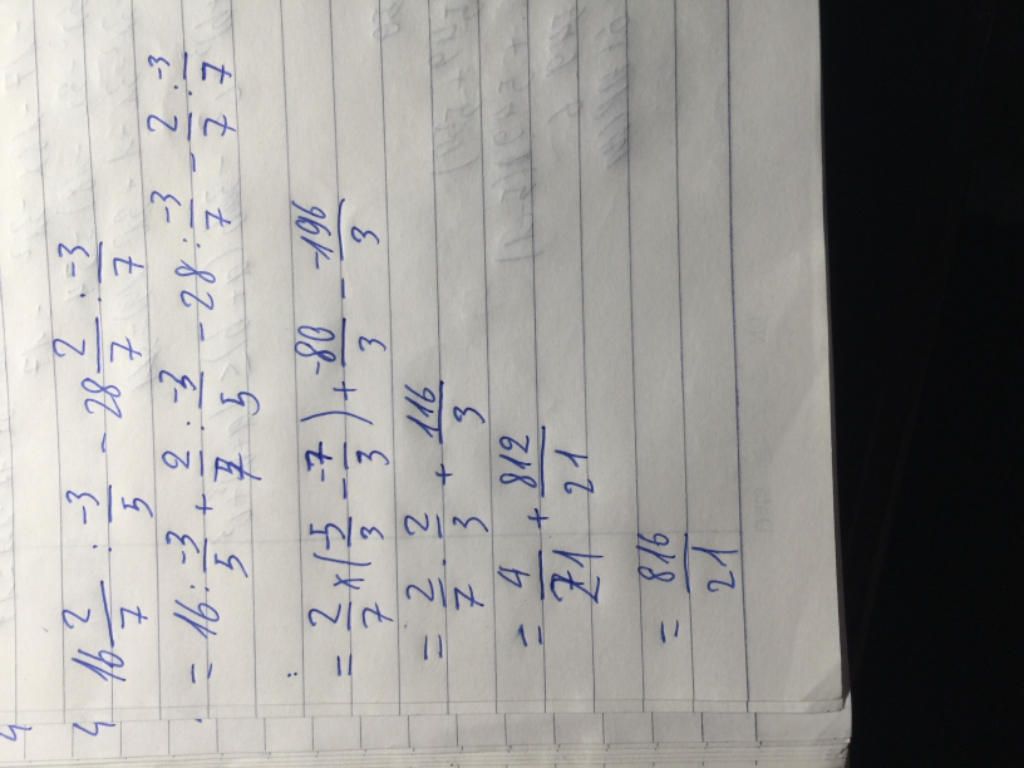 4 16 2/7 : -3/5 - 28 2/7 : -3/7
= 16 : -3/5 + 2/7 : -3/5 - 28 : -3/7 - 2/7 : -3/7
= 2/7 x (5/3 - -7/3) + -80/3 - -196/3
= 2/7 . 2/3 + 116/3
= 4/21 + 812/21
= 816/21